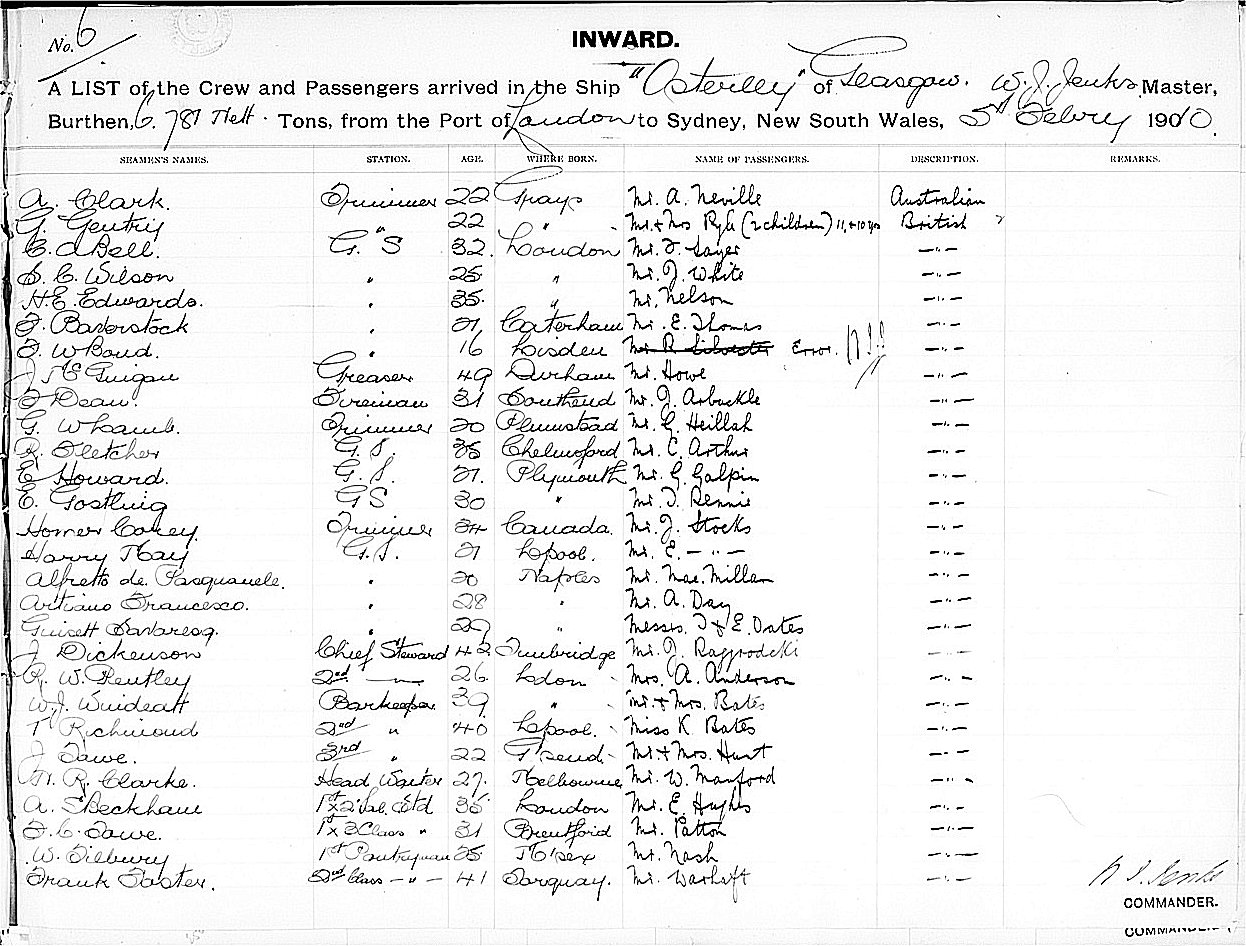 No. 6
INWARD.
A LIST of the Crew and Passengers arrived in the Ship "Osterley" of Glasgow. W. J. Jenks Master,
Burthen, 6.781 Nett. Tons, from the Port of London to Sydney, New South Wales, 5th Febry 1910.
SEAMEN'S NAMES. STATION. AGE. WHERE BORN. NAME OF PASSENGERS. DESCRIPTION. REMARKS.
A. Clark. Trimmer 22 Grays Mr. A. Neville Australian
G. Gentry " 22 " Mr. & Mrs (2 children) 11 & 10 yrs British
Bell. G. S 32. London Mr. Sayer -"-
C. Wilson " 25 " Mr. J. White -"-
H. E. Edwards. " 35. " Mr. Nelson -"-
Baverstock " 21 Caterham Mr. E. Thomas -"-
W Bond. " 16 Mr. R. Silvester Error. -"-
Greaser 49 Durham Mr. Howe -"-
Dean. Fireman 31 Southend Mr. J. Arbuckle -"-
G. W Lamb. Trimmer 20 Plumstead Mr. -"-
R. Fletcher G. S. 35 Chelmsford Mr. C. Arthur -"-
E Howard. G. S. 21. Plymouth Mr. G. Galpin -"-
E. Gostling G S 30 " Mr. Rennie -"-
Homer Corey. Trimmer 34 Canada. Mr. J. Stocks -"-
Harry May G. S. 21 Lpool. Mr. E. -"- -"-
Alfretto de Pasquanele. " 20 Naples Mr. Mac. Millan -"-
Artiano Francesco. " 28 " Mr. A. Day -"-
" 29 " Messrs. & E. Oates -"-
J Dickenson Chief Steward 42 Tunbridge Mr. J. -"-
R. W. Bentley 2nd -"- 26 Ldon Mrs. A. Anderson -"-
W. J. Windeatt Barkeeper 39 " Mr. & Mrs. Bates -"-
T Richmond 2nd " 40 Lpool. Miss K Bates -"-
J Tawe. 3rd " 22 G'send Mr & Mrs. Hunt -"-
R. Clarke. Head Waiter 27. Melbourne Mr. W. Manford -"-
A. S Beckham 35 London Mr. E. Hughs -"-
C. Tawe. Class " 31 Brentford Mr. Patton -"-
W. Tilbury 1st Pantryman 25 M'sex Mr. Nash -"-
Frank Foster. 2nd Class -"- 41 Torquay. Mr. Warhaft -"-
Jenks
COMMANDER.
COMMANDER.